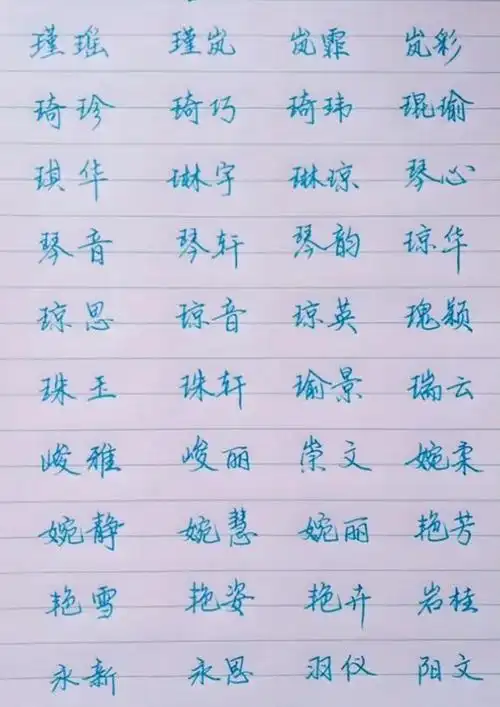 瑾瑶 瑾岚 岚霏 岚彩
琦珍 琦巧 琦玮 琨瑜
琪华 琳宇 琳琼 琴心
琴音 琴轩 琴韵 琼华
琼思 琼音 琼英 瑰颖
珠玉 珠轩 瑜景 瑞云
峻雅 峻丽 崇文 婉柔
婉静 婉慧 婉丽 艳芳
艳雪 艳姿 艳卉 岩桂
永新 永思 羽仪 阳文